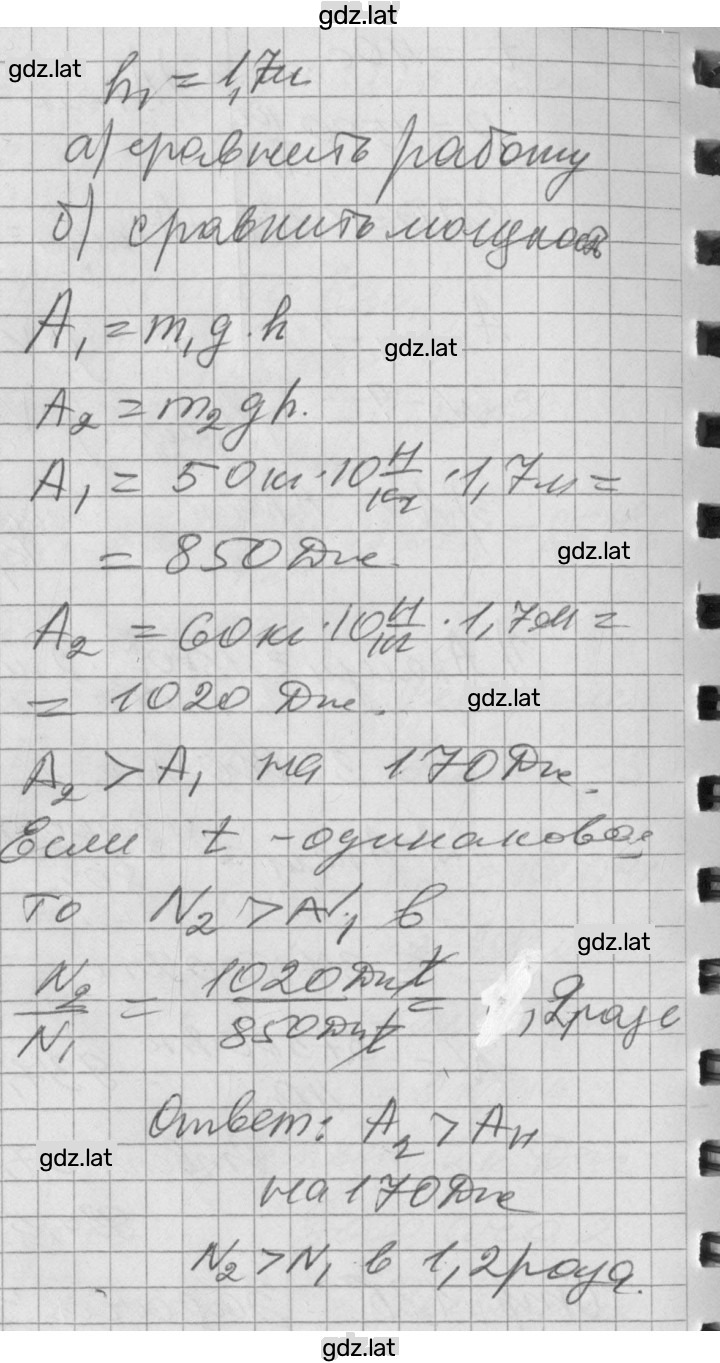 gdz.lat
gdz.lat
h₁ = 1,7м
а) сравнить работу
б) сравнить мощность
A₁ = m₁g·h
gdz.lat
A₂ = m₂gh.
A₁ = 50кг·10 Н/кг ·1,7м =
= 850 Дж.
gdz.lat
A₂ = 60кг·10 Н/кг ·1,7м =
= 1020 Дж.
gdz.lat
A₂ > A₁ на 170 Дж.
Если t - одинаковое,
то N₂ > N₁ в
gdz.lat
N₂/N₁ = 1020 Дж t/850 Дж t = ,2раза
Ответ: A₂ > A₁
gdz.lat
на 170 Дж
N₂ > N₁ в 1,2 раза.
gdz.lat